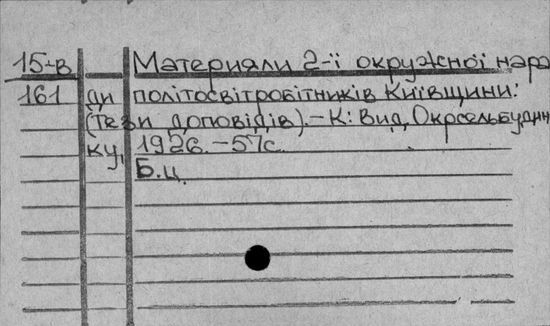 15-в Материяли 2-ї окружної нара
161 ди політосвітробітників Київщини:
(тези доповідів).-К: Вид, Окрсельбудин
ку, 1926.-57с.
Б.ц.